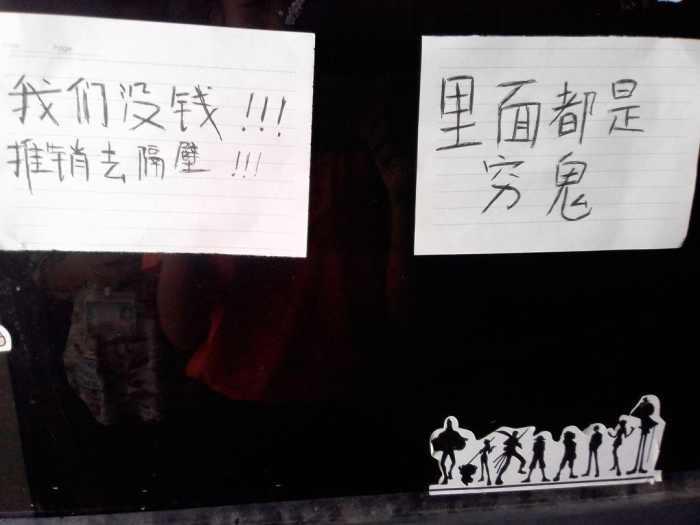 我们没钱!!!
推销去隔壁!!!
里面都是
穷鬼